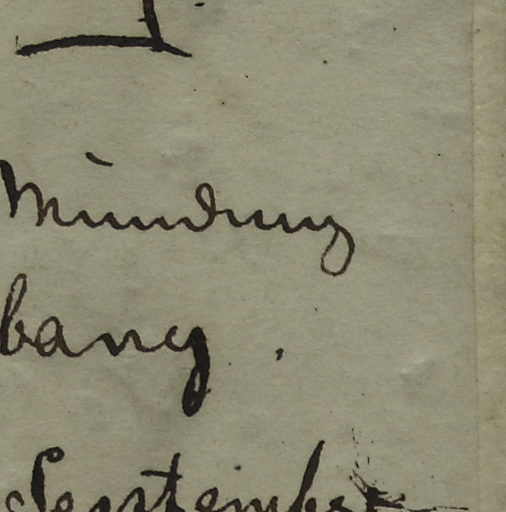 Mündung
bang.
September